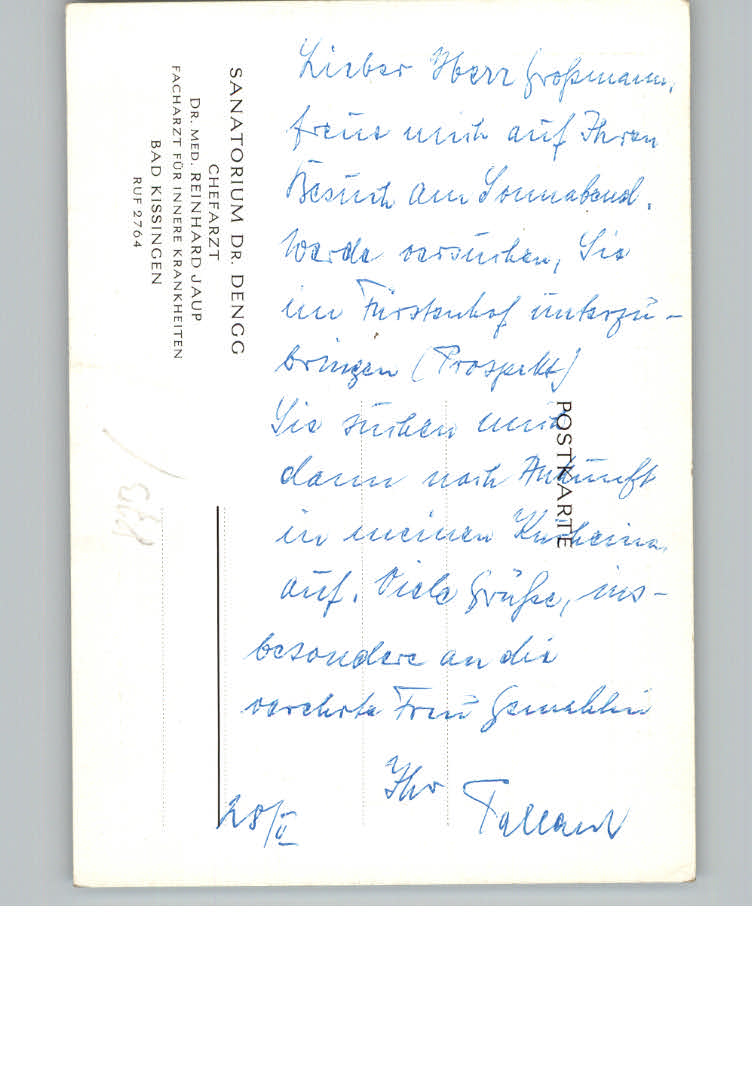 Lieber Herr Großmann,
freue mich auf Ihren
Besuch am Sonnabend.
Werde versuchen, Sie
im Fürstenhof unterzu-
bringen (Prospekt)
Sie suchen mich
dann nach Ankunft
in meinem Kurheim
auf. Viele Grüße, ins-
besondere an die
verehrte Frau Gemahlin
Ihr
28/II
SANATORIUM DR. DENGG
CHEFARZT
DR. MED. REINHARD JAUP
FACHARZT FÜR INNERE KRANKHEITEN
BAD KISSINGEN
RUF 2764
POSTKARTE